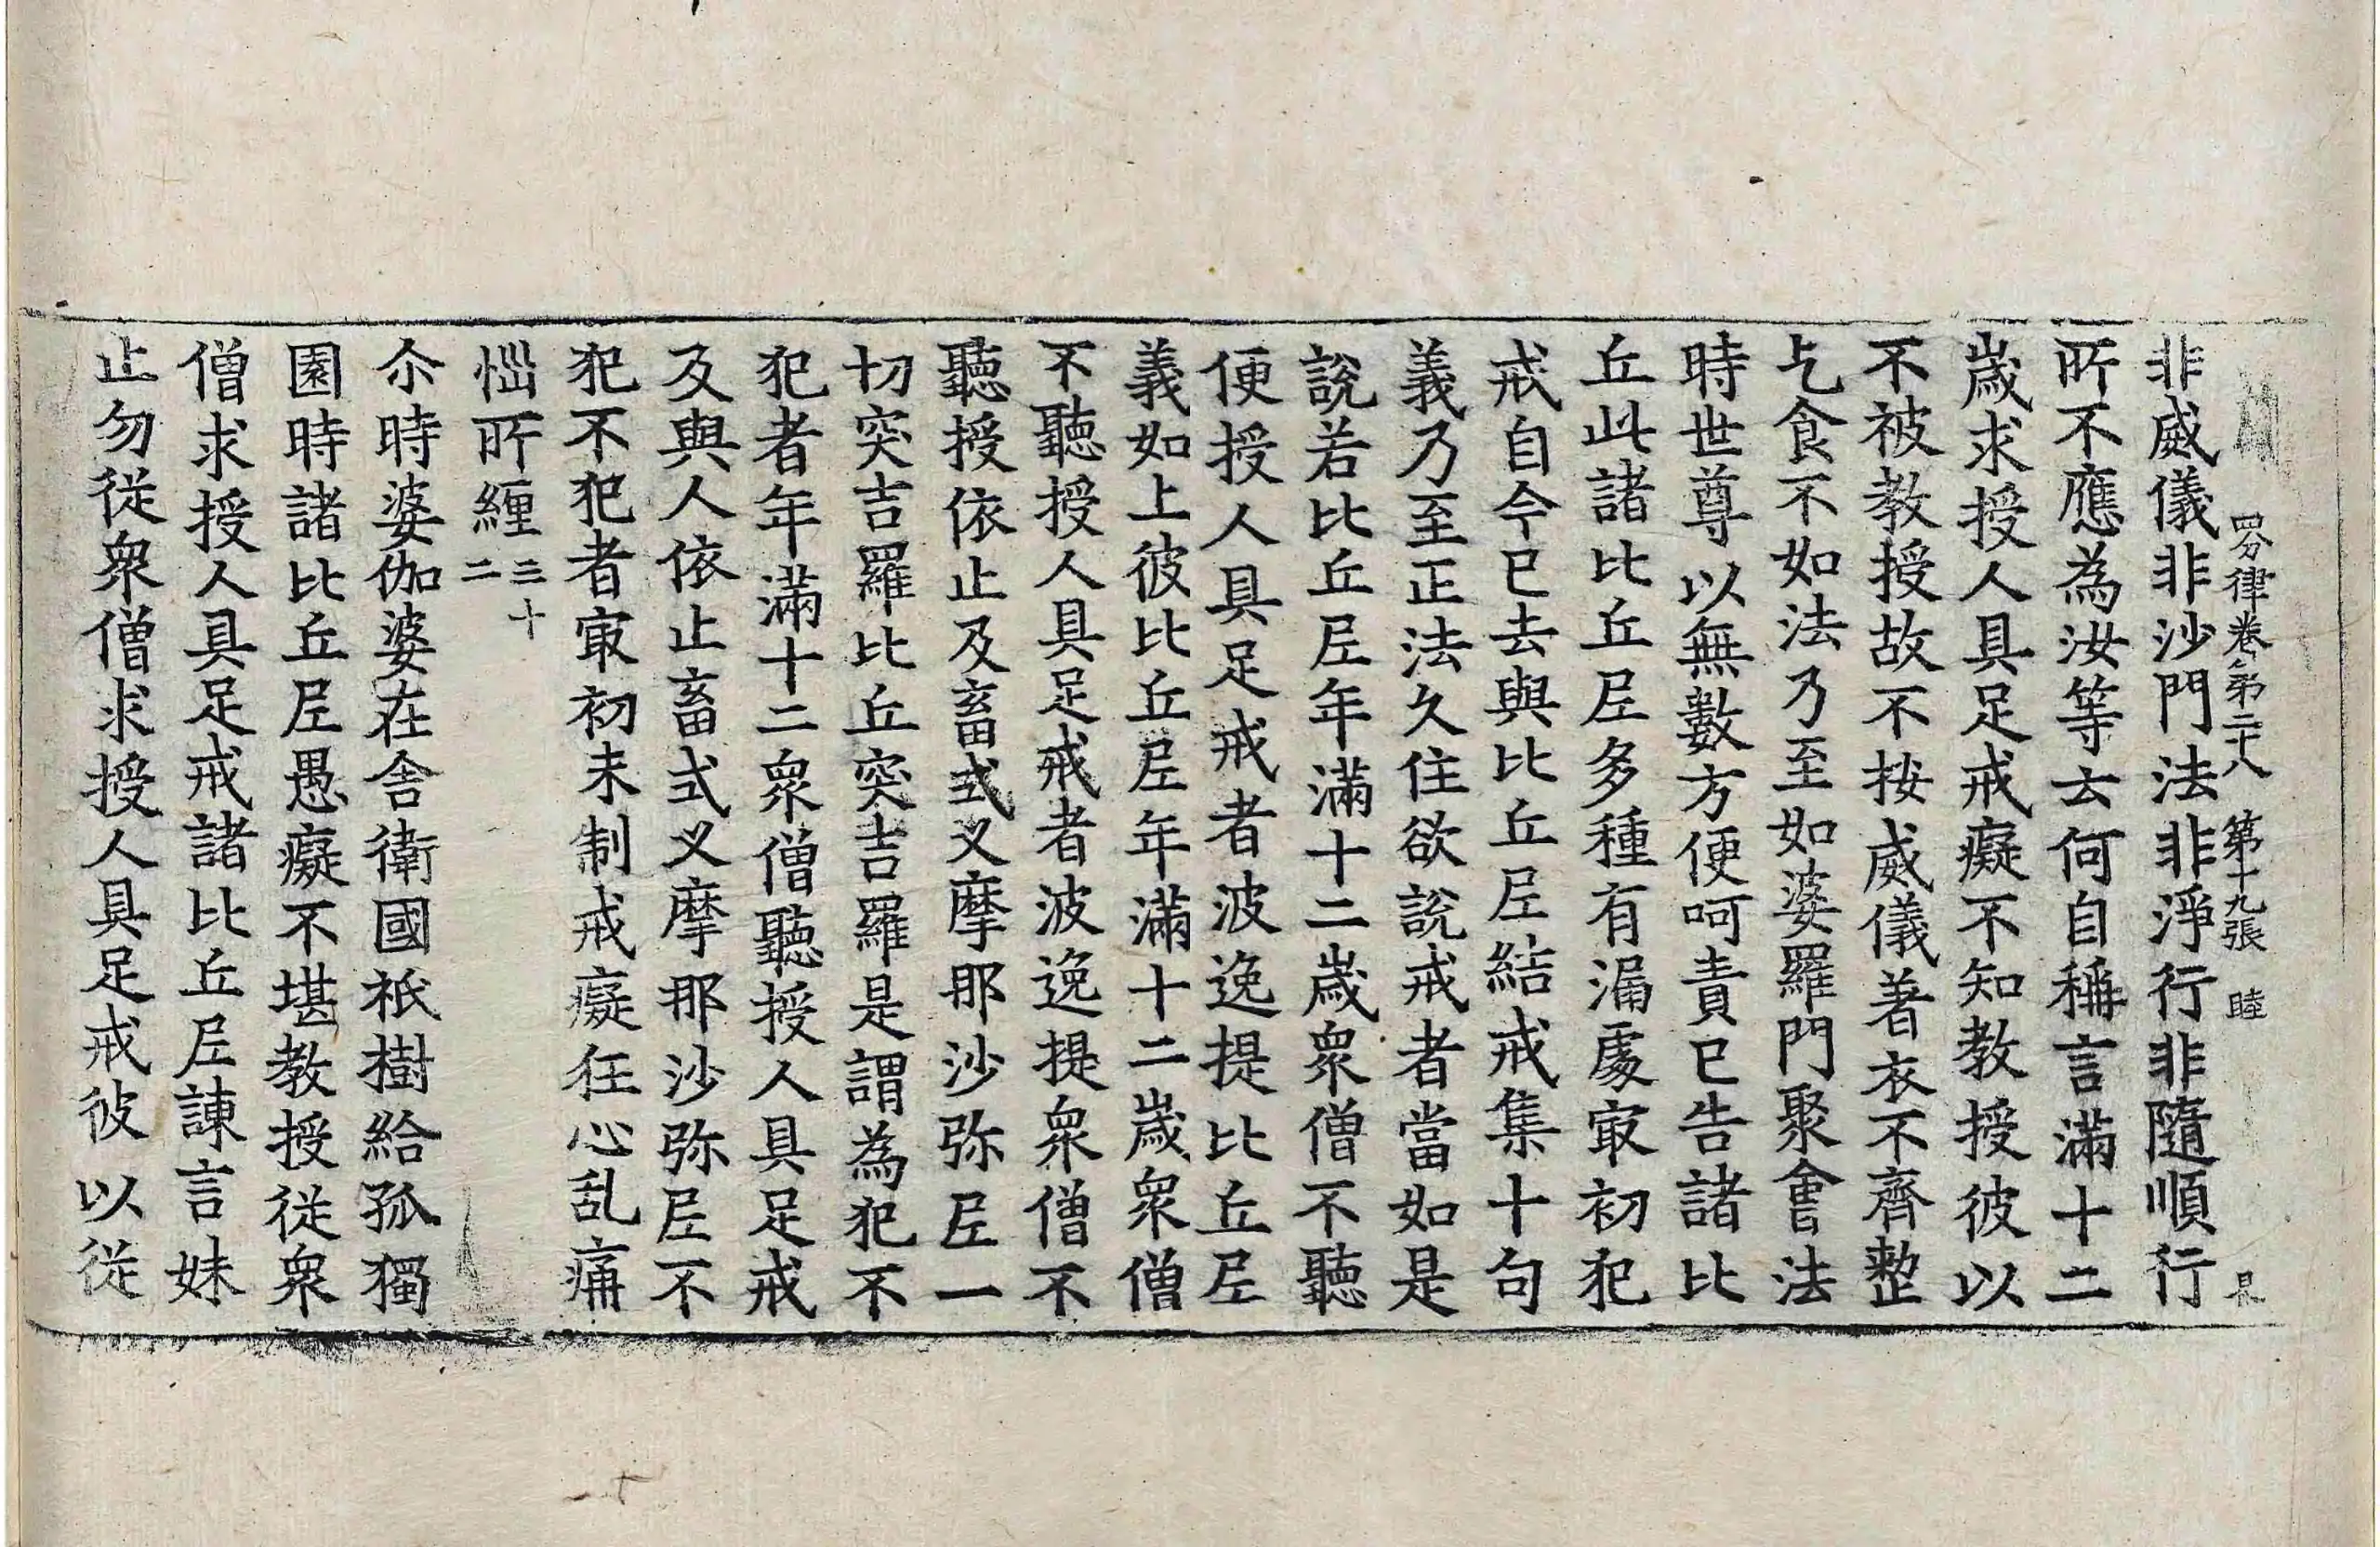 四分律卷第二十八 第十九張 睦
非威儀非沙門法非淨行非隨順行
所不應為汝等去何自稱言滿十二
歲求授人具足戒癡不知教授彼以
不被教授故不按威儀著衣不齊整
乞食不如法乃至如婆羅門聚會法
時世尊以無數方便呵責已告諸比
丘此諸比丘尼多種有漏處冣初犯
戒自今已去與比丘尼結戒集十句
義乃至正法久住欲說戒者當如是
說若比丘尼年滿十二歲眾僧不聽
便授人具足戒者波逸提比丘尼
義如上彼比丘尼年滿十二歲眾僧
不聽授人具足戒者波逸提眾僧不
聽授依止及畜式叉摩那沙弥尼一
切突吉羅比丘突吉羅是謂為犯不
犯者年滿十二眾僧聽授人具足戒
及與人依止畜式叉摩那沙弥尼不
犯不犯者冣初未制戒癡狂心乱痛
惱所纏三十二
尒時婆伽婆在舍衛國祇樹給孤獨
園時諸比丘尼愚癡不堪教授從眾
僧求授人具足戒諸比丘尼諫言妹
止勿從眾僧求授人具足戒彼以從